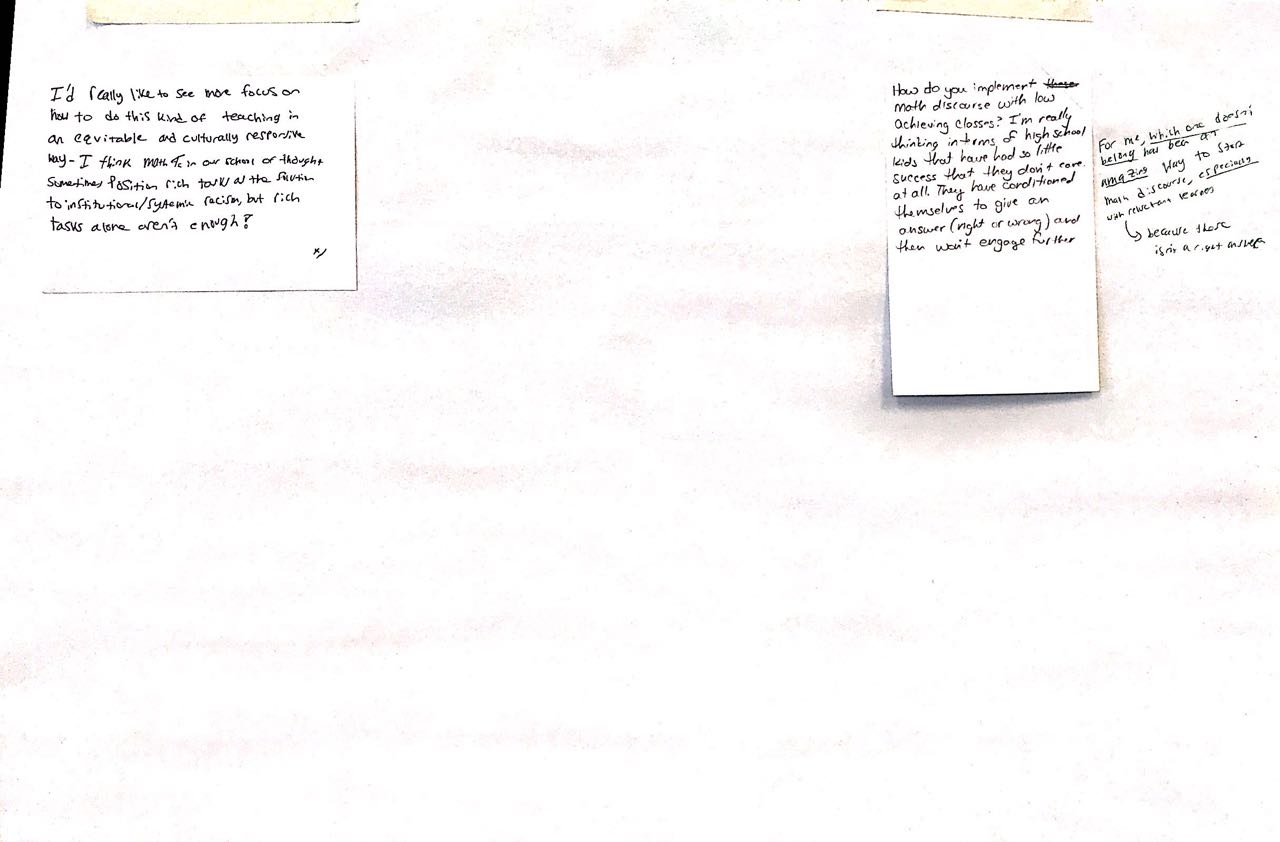 I'd really like to see more focus on
how to do this kind of teaching in
an equitable and culturally responsive
way - I think math Ts in our school of thought
sometimes position rich tasks as the solution
to institutional/systemic racism, but rich
tasks alone aren't enough?
How do you implement these
math discourse with low
achieving classes? I'm really
thinking in terms of high school
kids that have had so little
success that they don't care
at all. They have conditioned
themselves to give an
answer (right or wrong) and
then won't engage further
For me, which one doesn't
belong has been an
amazing way to start
math discourse, especially
with reluctant learners
because there
isn't a right answer